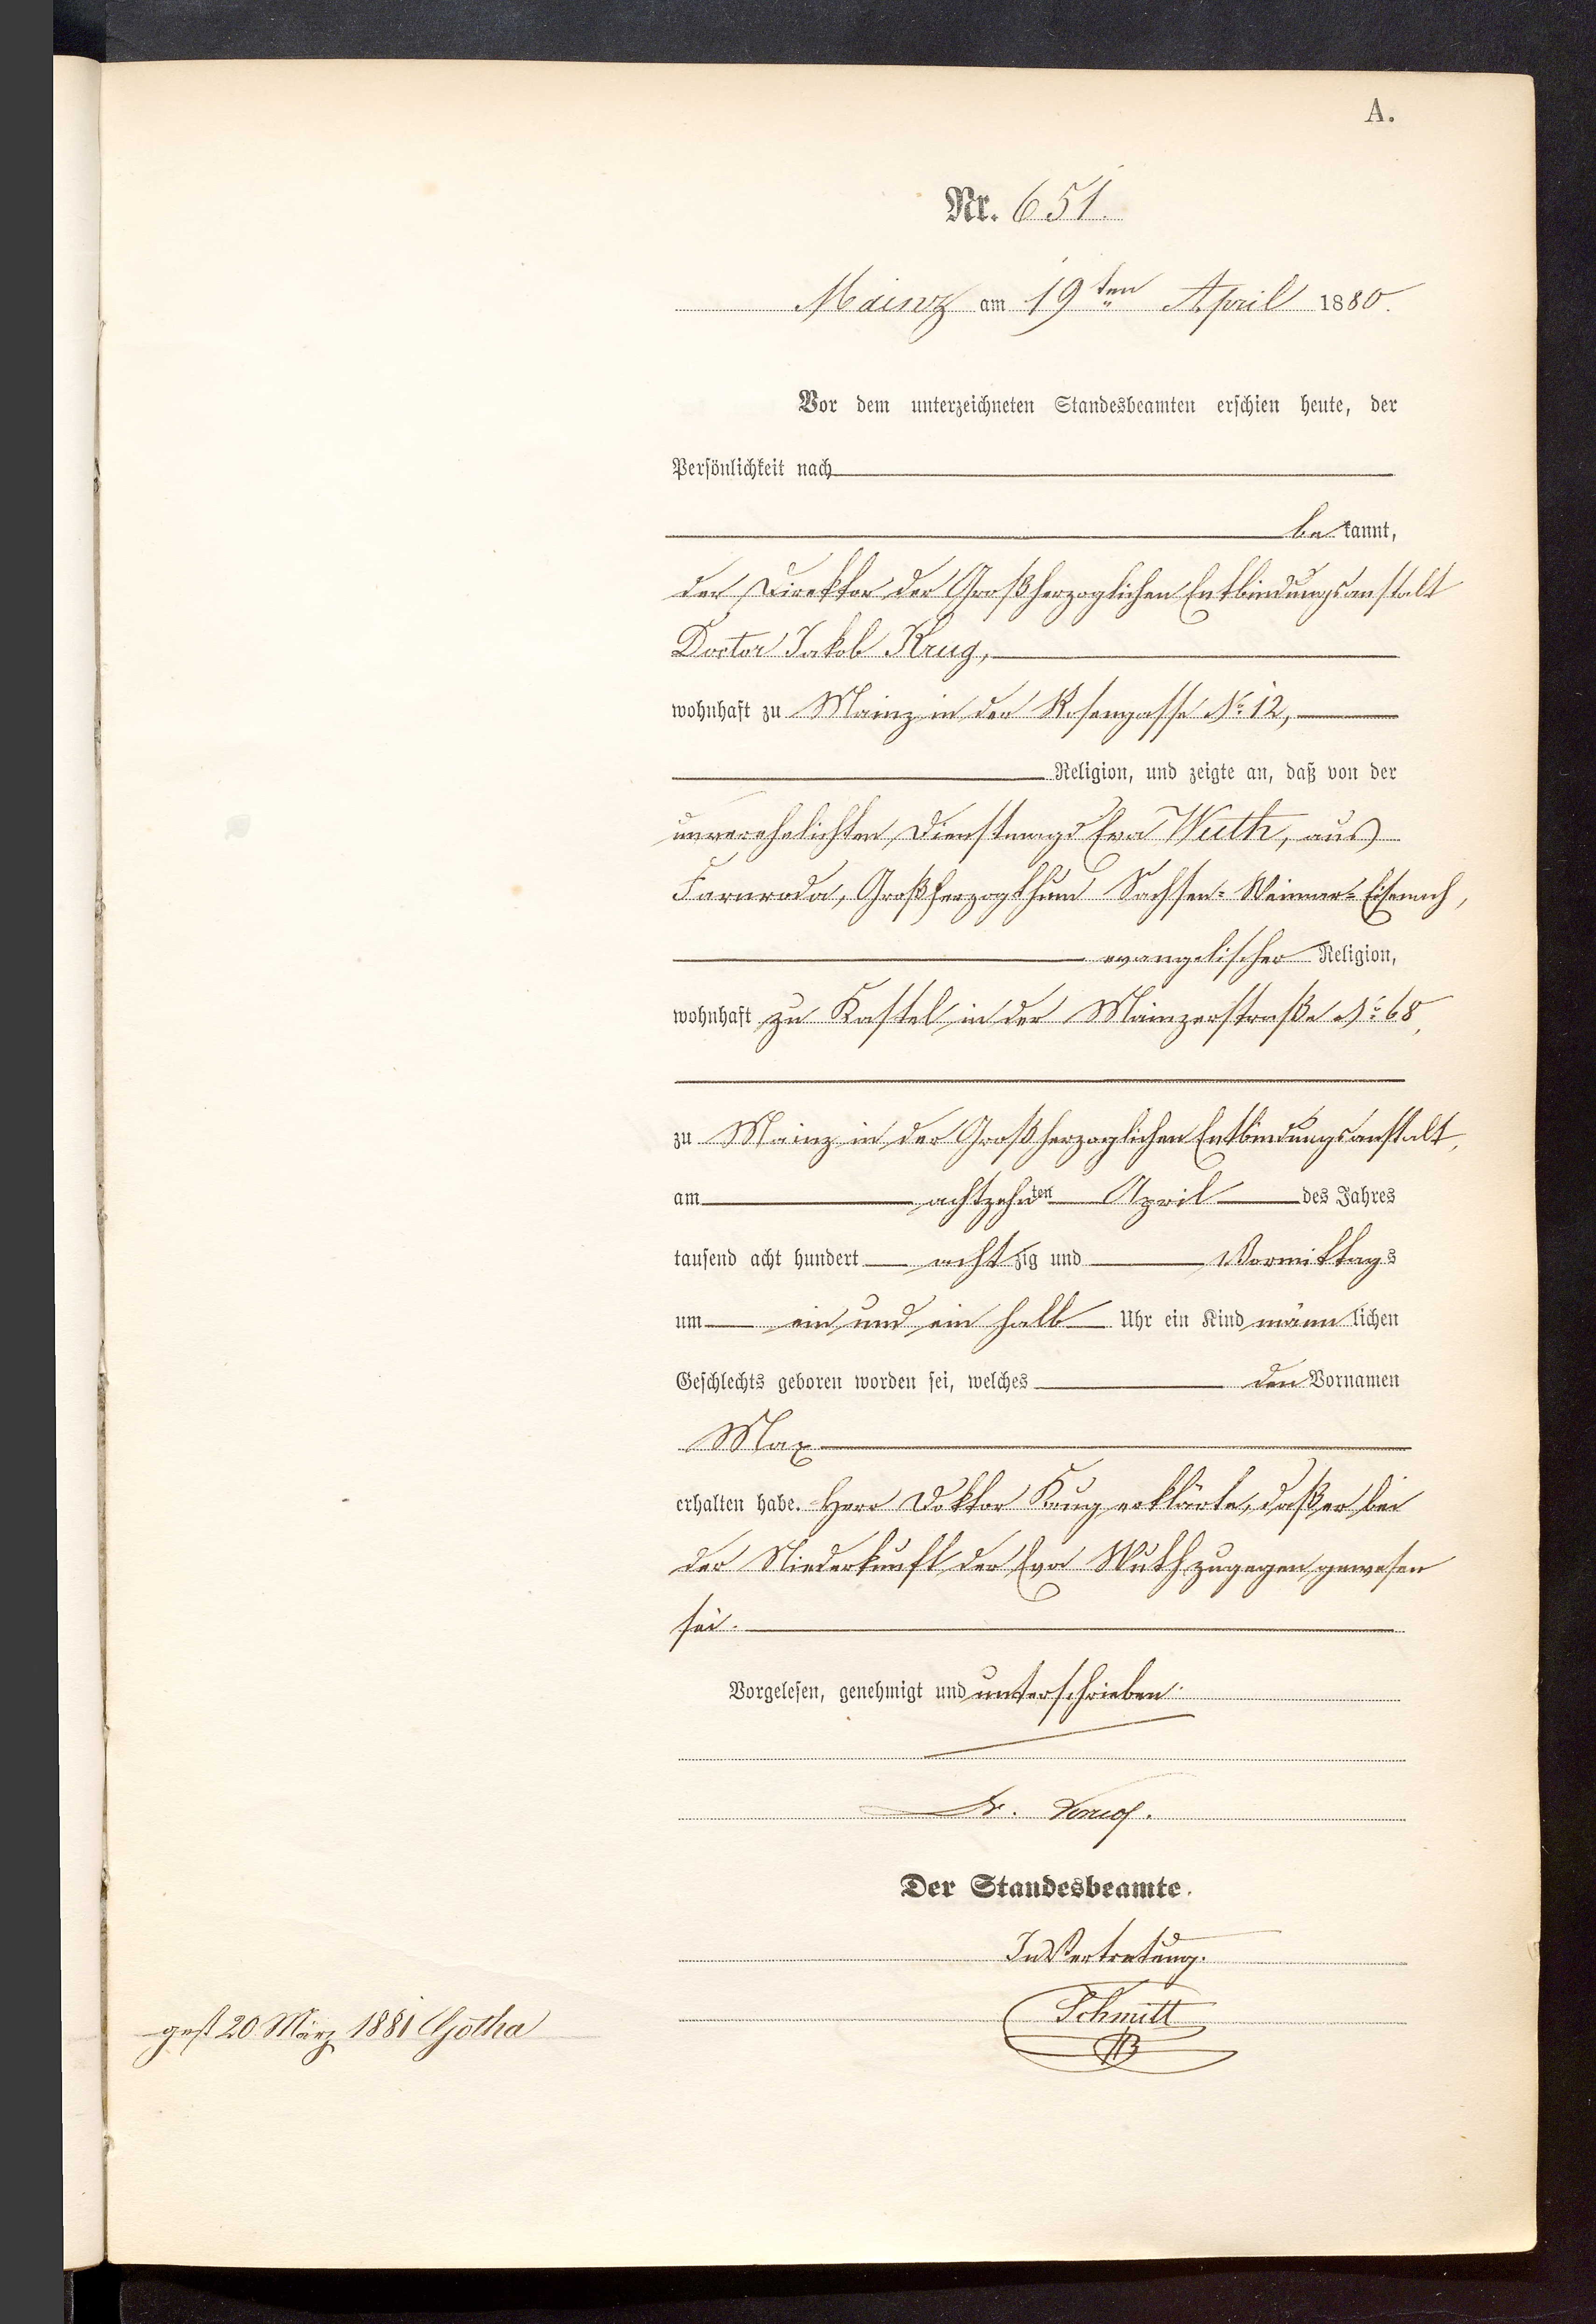 A.
Nr. 651.
Mainz am 19ten April 1880.
Vor dem unterzeichneten Standesbeamten erschien heute, der
Persönlichkeit nach
bekannt,
der Direktor der Großherzoglichen Entbindungsanstalt
Doctor Jakob Krug,
wohnhaft zu Mainz in der Rosengasse No 12,
Religion, und zeigte an, daß von der
unverehelichten Dienstmagd Eva Wuth, aus
Farnroda, Großherzogthum Sachsen-Weimar-Eisenach,
evangelischer Religion,
wohnhaft zu Kastel in der Mainzerstraße No 68,
zu Mainz in der Großherzoglichen Entbindungsanstalt,
am achtzehnten April des Jahres
tausend acht hundert achtzig und Vormittags
um ein und ein halb Uhr ein Kind männlichen
Geschlechts geboren worden sei, welches den Vornamen
Max
erhalten habe. Herr Doktor Krug erklärte, daß er bei
der Niederkunft der Eva Wuth zugegen gewesen
sei.
Vorgelesen, genehmigt und unterschrieben.
Dr. Krug.
Der Standesbeamte.
In Vertretung.
Schmitt
gest 20 März 1881 Gotha